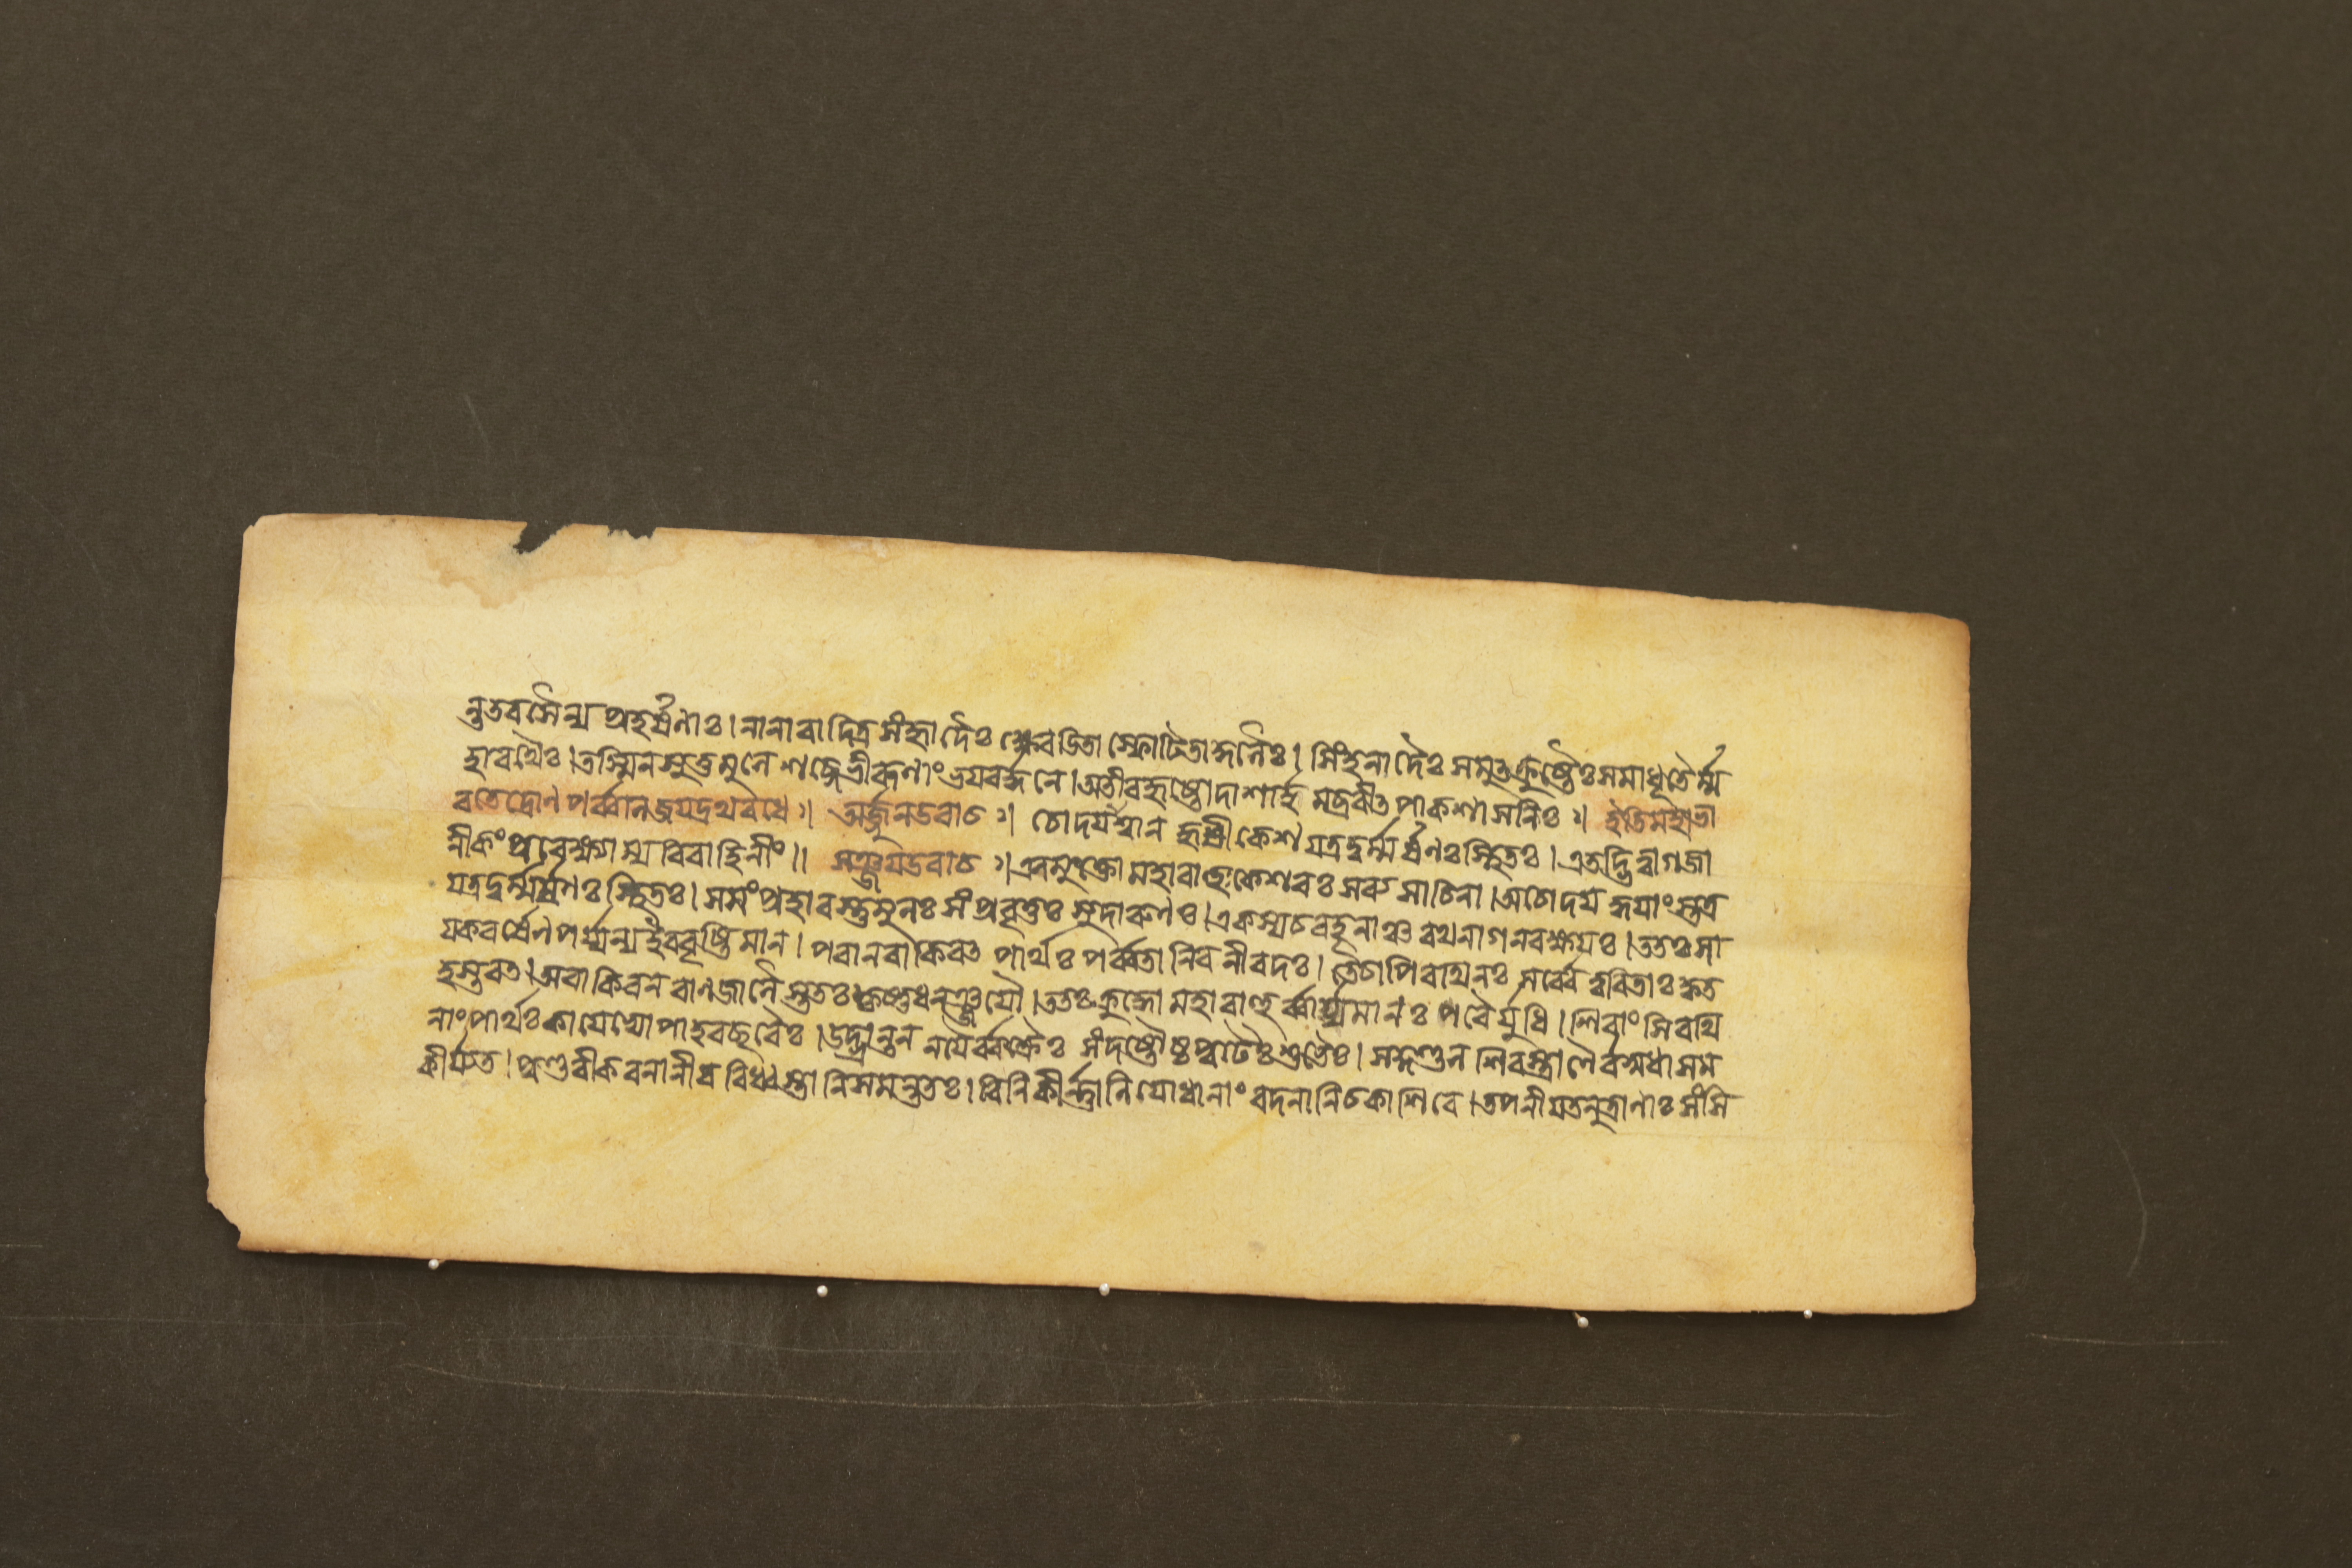 ন্তুতবসৈন্য প্রহর্ষণাঃ। নানাবাদিত্র সংহ্রাদৈঃ ক্ষ্বেবডিতা স্ফোটিতাকুলৈঃ। সিংহনাদৈঃ সমুত্ক্রুষ্টৈঃ সমাধূতৈর্ম্ম
হাবথৈঃ। তস্মিনসুতুমুনে শব্দে ভীবূণাং ভযবর্দ্ধনে। অতীবহৃষ্টোদাশার্হ মব্রবীত পাকশাসনিঃ ঃ। ইতিমহাভা
বতেদ্রোণপর্ব্বানজযদ্রথবধে ঃ। অর্জ্জুনউবাচ ঃ। চোদযাশ্বান হৃষীকেশ যত্রদুর্ম্মর্ষণঃস্থিতঃ। এতদ্ভিত্বাগজা
নীকং প্রবেক্ষ্যাম্যবিবাহিনীং॥ সঞ্জযউবাচ ঃ। এবমুক্তোমহাবাহুঃকেশবঃ সব্যসাচিনা। অচোদযদ্ধযাংস্তত্র
যত্রদুর্ম্মর্ষণঃস্থিতঃ। সসংপ্রহাবস্তুমুনঃ সংপ্রবৃত্তঃ সুদাবুণঃ। একস্যচবহূনাঞ্চ বথনাগনবক্ষযঃ। ততঃসা
যকবর্ষেণপর্য্যন্যইববৃষ্টিমান। পবানবাকিবত পার্থঃ পর্ব্বতানিবনীবদঃ। তেচাপিবথিনঃ সর্ব্বে ত্ববিতাঃকৃত
হস্তবত। অবাকিবনবাণজানৈস্ততঃকৃষ্ণধনঞ্জযৌ। ততঃক্রুদ্ধোমহাবাহুর্ব্বার্য্যমানঃ পবৈর্যুধি। শিবাংসিবথি
নাংপার্থঃকাযেভ্যোপাহবচ্ছবৈঃ। উদ্ভ্রান্তন নযৈর্ব্বক্ত্রৈঃ সংদষ্টৌষ্ঠপুটৈঃশুভৈঃ। সকুণ্ডনশিবস্ত্রাণৈর্বসুধাসম
কীর্যত। পুণ্ডবীকবনানীব বিধ্বস্তানিসমন্ততঃ। বিনিকীর্ন্নানিযোধানাং বদনানিচকাশিবে। তপনীযতনুত্রাণাঃ সংসি